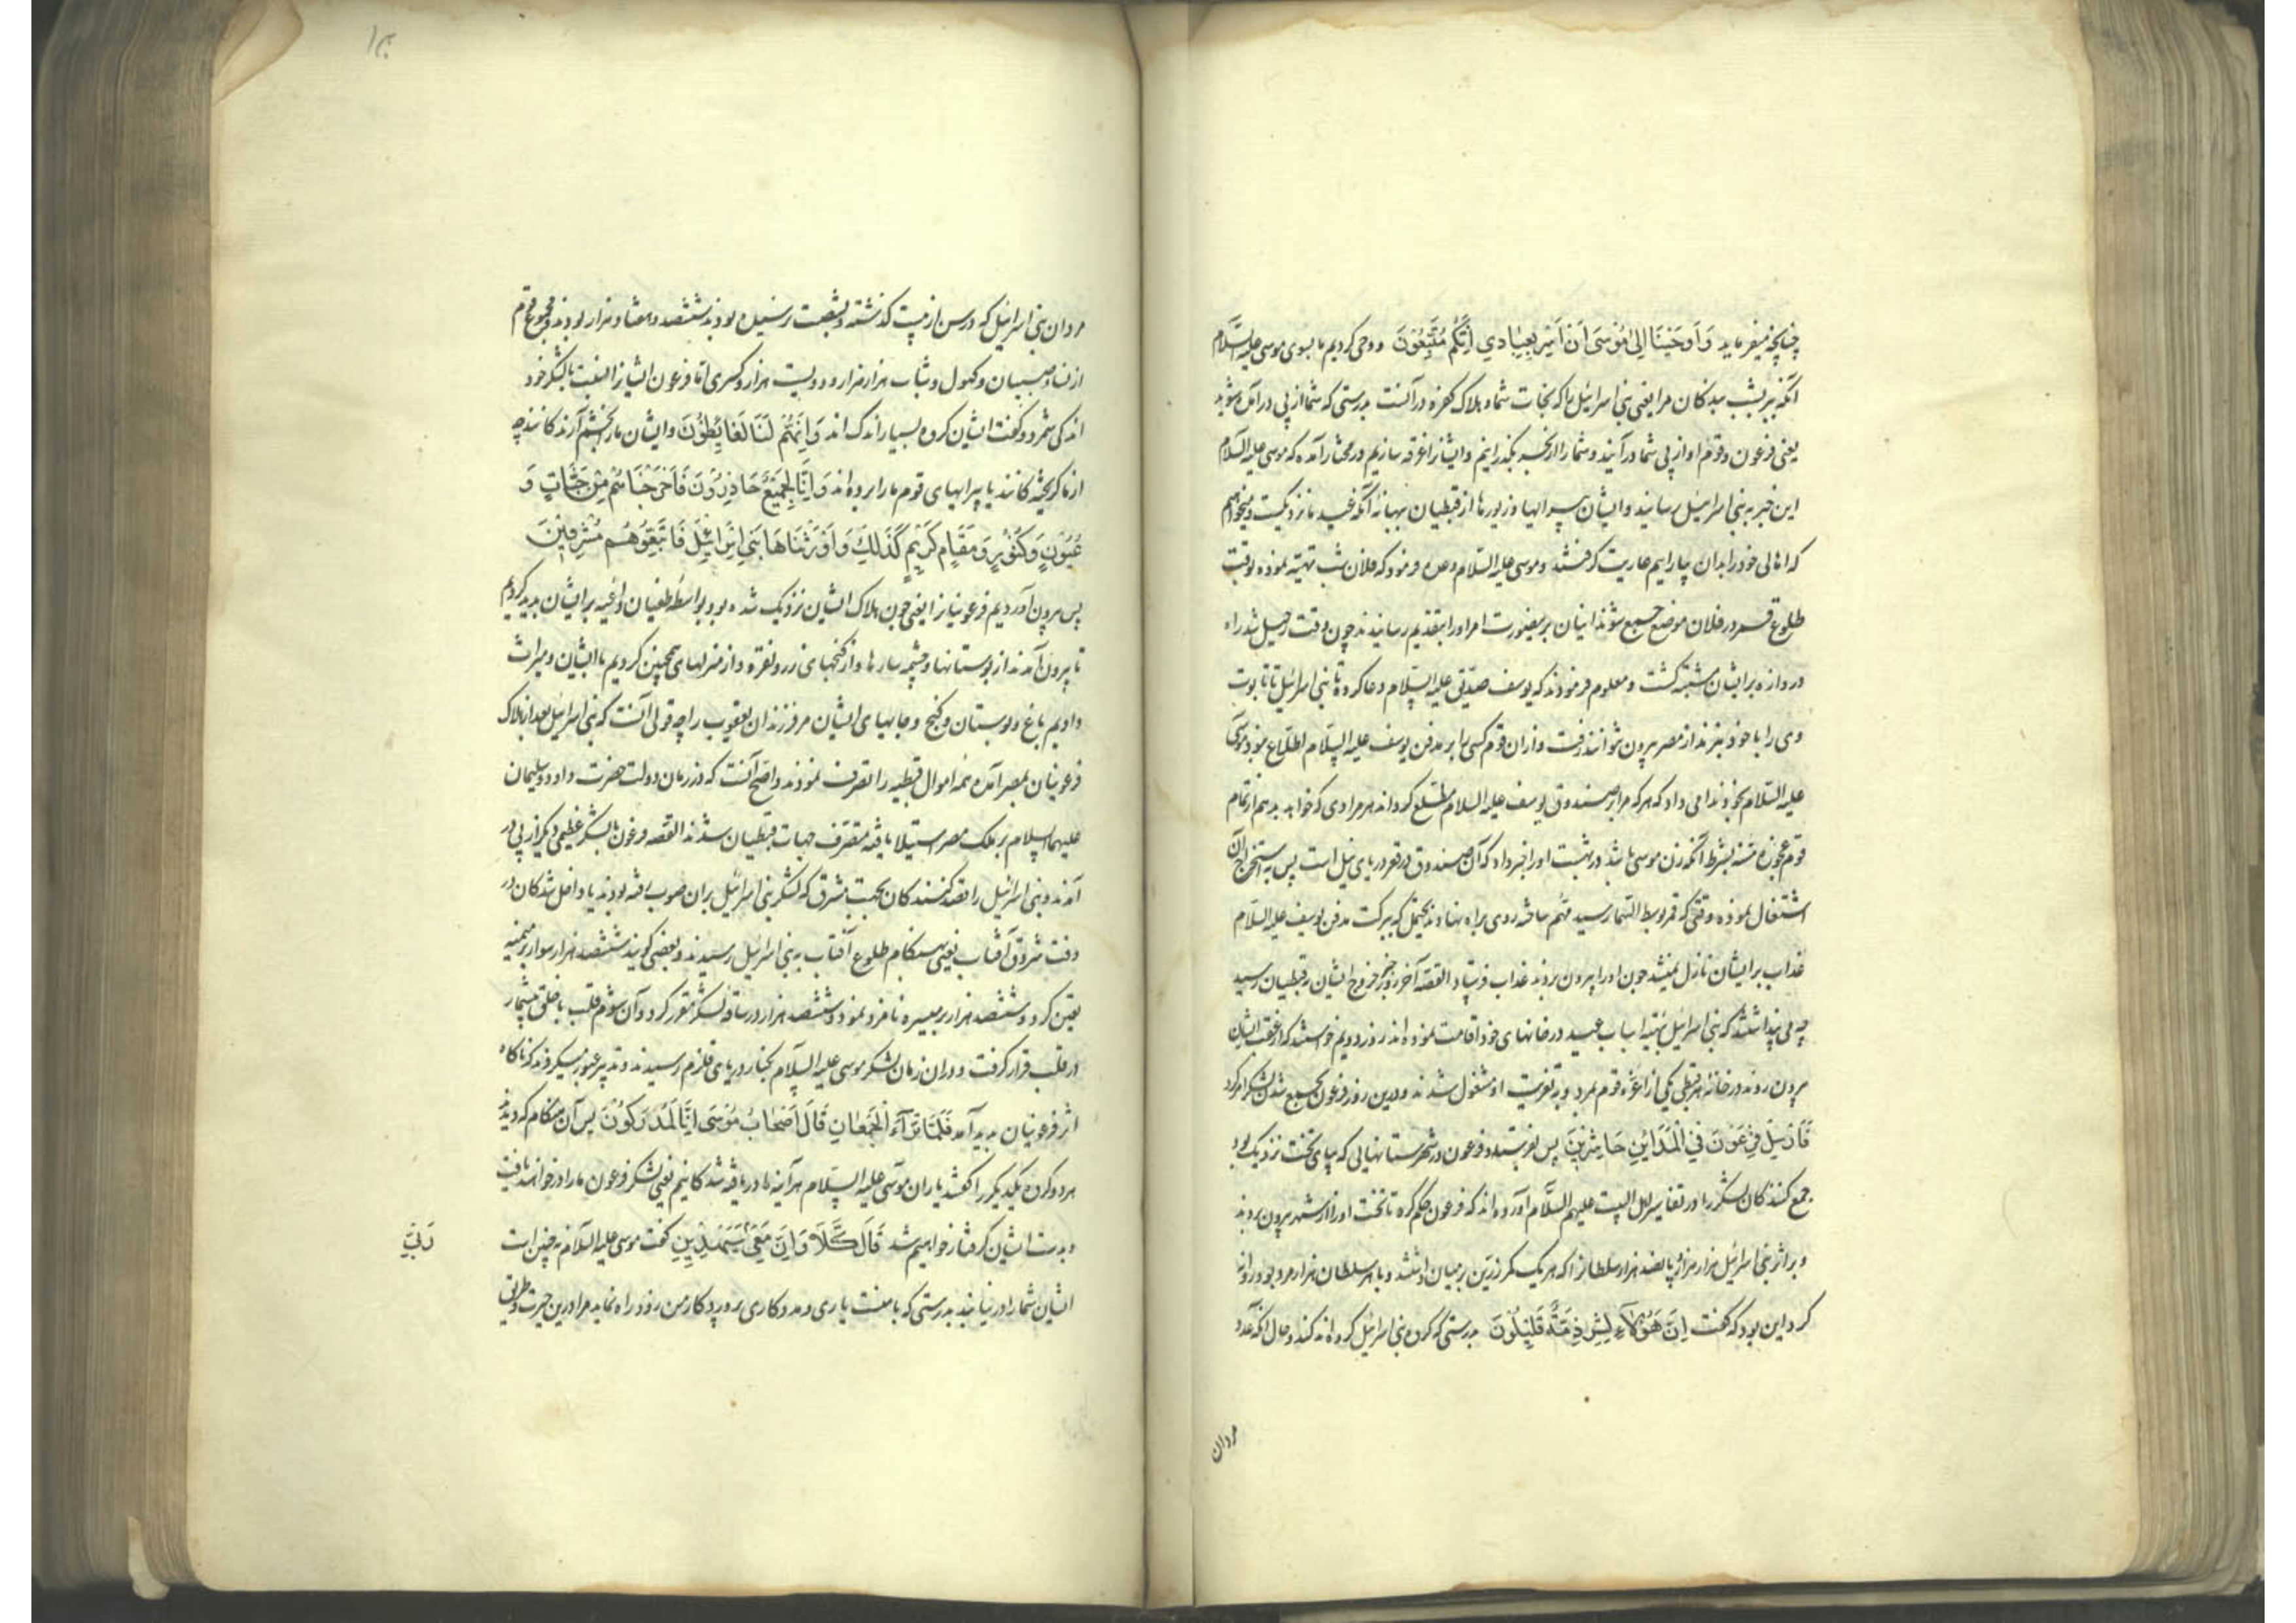 چنانچه میفرماید وَاَوحَینَا اِلیٰ مُوسَی اَن اَسرِ بِعِبَادِی اِنَّکُم مُتَّبَعُونَ و وحی کردیم ما بسوی موسی علیه السلام
آنکه ببر بشب بندکان مرا یعنی بنی اسرائیل را که نجات شما و هلاک کفره در آنست بدرستی که شما از پی در آمده شوید
یعنی فرعون و قوم او از پی شما در آیند و شما را از بحر بگذرانیم و ایشانرا غرقه سازیم در مختار آمده که موسی علیه السلام
این خبر به بنی اسرائیل رسانید و ایشان پیرایها و زیورها از قبطیان ببهانه آنکه عید ما نزدیکست و میخواهیم
که اهالی خود را بدان بیاراییم عاریت کرفتند و موسی علیه السلام وعده فرمود که فلان شب تهیه نموده بوقت
طلوع قمر در فلان موضع جمع شوند اینان برینصورت امر او را بتقدیم رسانیدند چون وقت رحیل شد راه
دروازه بر ایشان مشتبه کشت و معلوم فرمودند که یوسف صدیق علیه السلام دعا کرده تا بنی اسرائیل تا تابوت
وی را با خود نبرند از مصر بیرون نتوانند رفت و ازان قوم کسی را بر مدفن یوسف علیه السلام اطلاع نبود موسی
علیه السلام بخود ندا می داد که هر که مرا بر صندوق یوسف علیه السلام مطلع کرداند هر مرادی که خواهد بدهم از تمام
قوم عجوزه مسنه بشرط آنکه زن موسی باشد در بهشت او را خبر داد که آن صندوق در قعر دریای نیل است پس به استخراج آن
اشتغال نموده وقتی که قمر بوسط السما رسید مهم ساخته روی براه نهادند که ببرکت مدفن یوسف علیه السلام
عذاب بر ایشان نازل نمیشد چون او را بیرون بردند عذاب فرستاد القصه آخر روز خبر خروج ایشان بقبطیان رسید
چه می پنداشتند که بنی اسرائیل بتهیه اسباب عید در خانهای خود اقامت نموده اند روز دویم خواستند که از عقب ایشان
بیرون روند در خانه هر قبطی یکی از اعزه قوم بمرد و به تعزیت او مشغول شدند و درین روز فرعون بجمع شدن لشکر امر کرد
فَاَرسَلَ فِرعَونَ فِی المَدَائِنِ حَاشِرِینَ پس بفرستید فرعون در شهرستانهایی که بپای تخت نزدیک بود
جمع کنندکان لشکر را و در تفاسیر اهل البیت علیهم السلام آورده اند که فرعون حکم کرد تا تخت او را از شهر بیرون بردند
و بر اثر بنی اسرائیل هزار هزار و پانصد هزار سلطان را که هر یک کمر زرین بر میان داشتند و با هر سلطان هزار مرد بود روانه
کرد این بود که کفت اِنَّ هَؤُلَاءِ لَشِرذِمَةٌ قَلِیلُونَ بدرستی که کروه بنی اسرائیل کروه اندکند و حال آنکه عدد
مردان
مردان بنی اسرائیل که در سن از بیست کذشته و بشصت رسیده بودند ششصد و هفتاد هزار بودند و مجموع قوم
از نسا و صبیان و کهول و شاب هزار هزار و دویست هزار و کسری اما فرعون ایشانرا بنسبت با لشکر خود
اندکی شمرد و کفت ایشان کروه بسیار اندک اند وَاِنَّهُم لَنَا لَغَائِظُونَ و ایشان ما را بخشم آرندکانند چه
از ما کریخته کانند با پیرایهای قوم ما را برده اند وَاِنَّا لَجَمِیعٌ حَاذِرُونَ فَاَخرَجنَاهُم مِن جَنَّاتٍ وَ
عُیُونٍ وَکُنُوزٍ وَمَقَامٍ کَرِیمٍ کَذَلِکَ وَاَورَثنَاهَا بَنِی اِسرَائِیلَ فَاَتبَعُوهُم مُشرِقِینَ
پس بیرون آوردیم فرعونیانرا یعنی چون هلاک ایشان نزدیک شده بود بواسطه طغیان داعیه بر ایشان پدید کردیم
تا بیرون آمدند از بوستانها و چشمه سارها و از کنجهای زر و نقره و از منزلهای همچنین کردیم با ایشان و میراث
دادیم باغ و بوستان و کنج و جایهای ایشان مر فرزندان یعقوب را چه قولی آنست که بنی اسرائیل بعد از هلاک
فرعونیان بمصر آمده همه اموال قبطیه را تصرف نمودند و اصح آنست که در زمان دولت حضرت داود و سلیمان
علیهما السلام بر ملک مصر استیلا یافته متصرف جهات قبطیان شدند القصه فرعون با لشکر عظیمی دیکر از پی در
آمدند و بنی اسرائیل را قصد کنندکان بجهت مشرق که لشکر بنی اسرائیل بران صوب رفته بودند یا داخل شدکان در
وقت شروق آفتاب یعنی هنکام طلوع آفتاب به بنی اسرائیل رسیدند و بعضی کویند ششصد هزار سوار بر میمنه
تعین کرد و ششصد هزار بر میسره نامزد نمود و ششصد هزار در ساقه لشکر مقرر کرد و آن شوم قلب با خلق بیشمار
در قلب قرار کرفت و دران زمان لشکر موسی علیه السلام بکنار دریای قلزم رسیدند و تدبیر عبور میکردند که ناکاه
اثر فرعونیان پدید آمد فَلَمَّا تَرَآءَ الجَمعَانِ قَالَ اَصحَابُ مُوسَی اِنَّا لَمُدرَکُونَ پس آن هنکام که دیدند
هر دو کروه یکدیکر را کفتند یاران موسی علیه السلام هر آینه ما دریافته شدکانیم یعنی لشکر فرعون ما را در خواهند یافت
و بدست ایشان کرفتار خواهیم شد قَالَ کَلَّا وَاِنَّ مَعِیَ سَیَهدِینِ کفت موسی علیه السلام نه چنین است
رَبِّی
ایشان شما را در نیابند بدرستی که با منست یاری و مددکاری پروردکار من زود راه نماید مرا درین حیرت و طریق